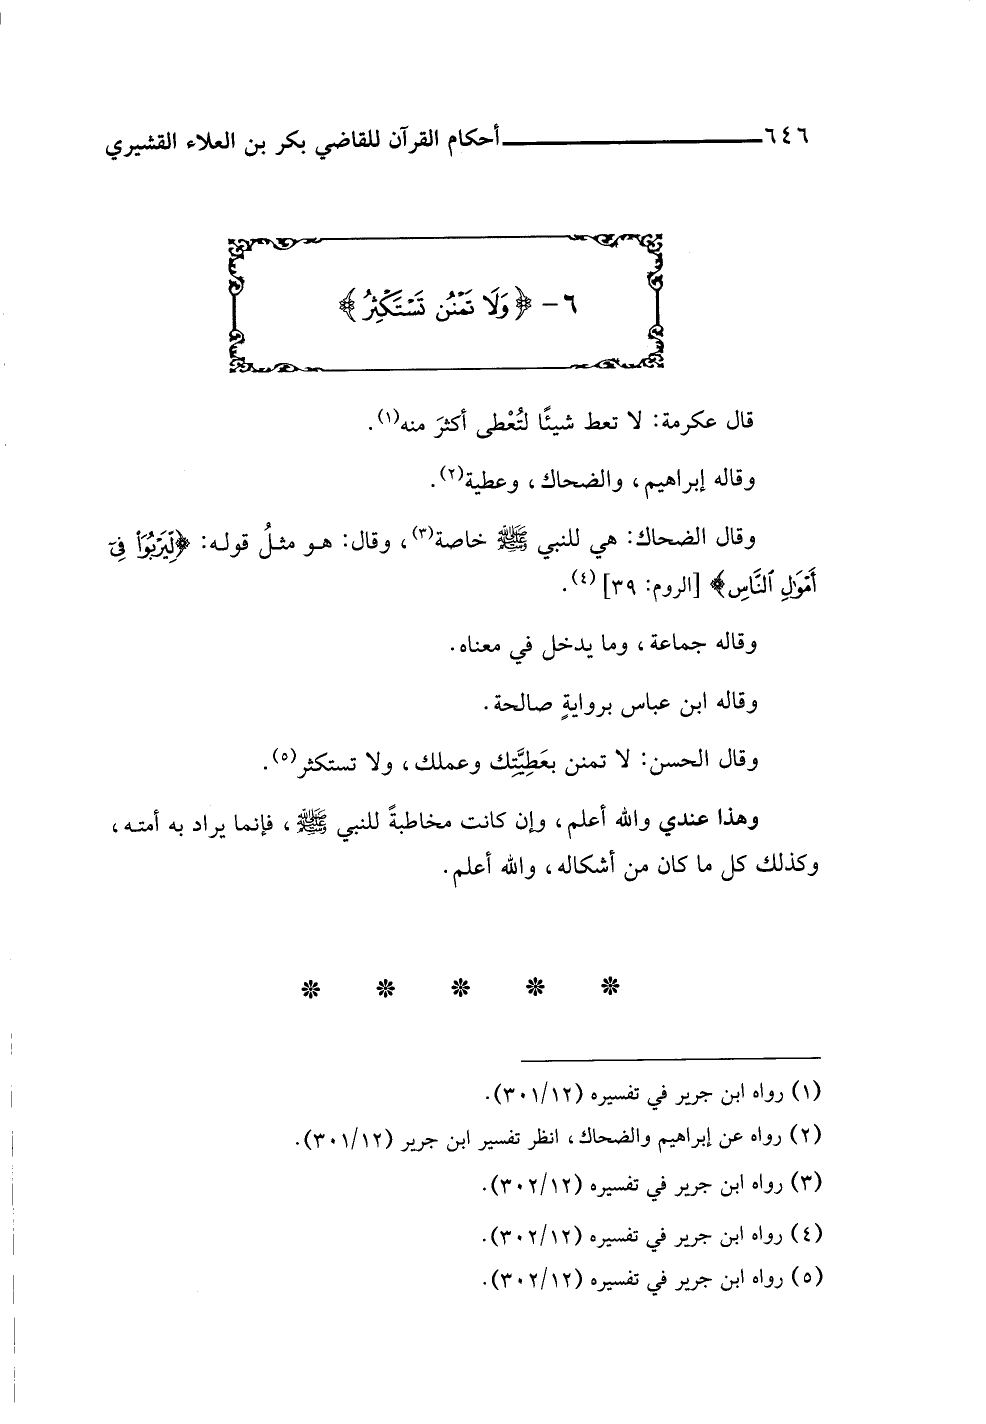 ٦٤٦ أحكام القرآن للقاضي بكر بن العلاء القشيري
٦ - ﴿وَلَا تَمْنُن تَسْتَكْثِرُ﴾
قال عكرمة: لا تعط شيئًا لتُعْطى أكثرَ منه(١).
وقاله إبراهيم، والضحاك، وعطية(٢).
وقال الضحاك: هي للنبي ﷺ خاصة(٣)، وقال: هو مثلُ قوله: ﴿لِّيَرْبُوَاْ فِىٓ
أَمْوَٰلِ ٱلنَّاسِ﴾ [الروم: ٣٩](٤).
وقاله جماعة، وما يدخل في معناه.
وقاله ابن عباس بروايةٍ صالحة.
وقال الحسن: لا تمنن بعَطِيَّتِك وعملك، ولا تستكثر(٥).
وهذا عندي والله أعلم، وإن كانت مخاطبةً للنبي ﷺ، فإنما يراد به أمته،
وكذلك كل ما كان من أشكاله، والله أعلم.
(١) رواه ابن جرير في تفسيره (٣٠١/١٢).
(٢) رواه عن إبراهيم والضحاك، انظر تفسير ابن جرير (٣٠١/١٢).
(٣) رواه ابن جرير في تفسيره (٣٠٢/١٢).
(٤) رواه ابن جرير في تفسيره (٣٠٢/١٢).
(٥) رواه ابن جرير في تفسيره (٣٠٢/١٢).